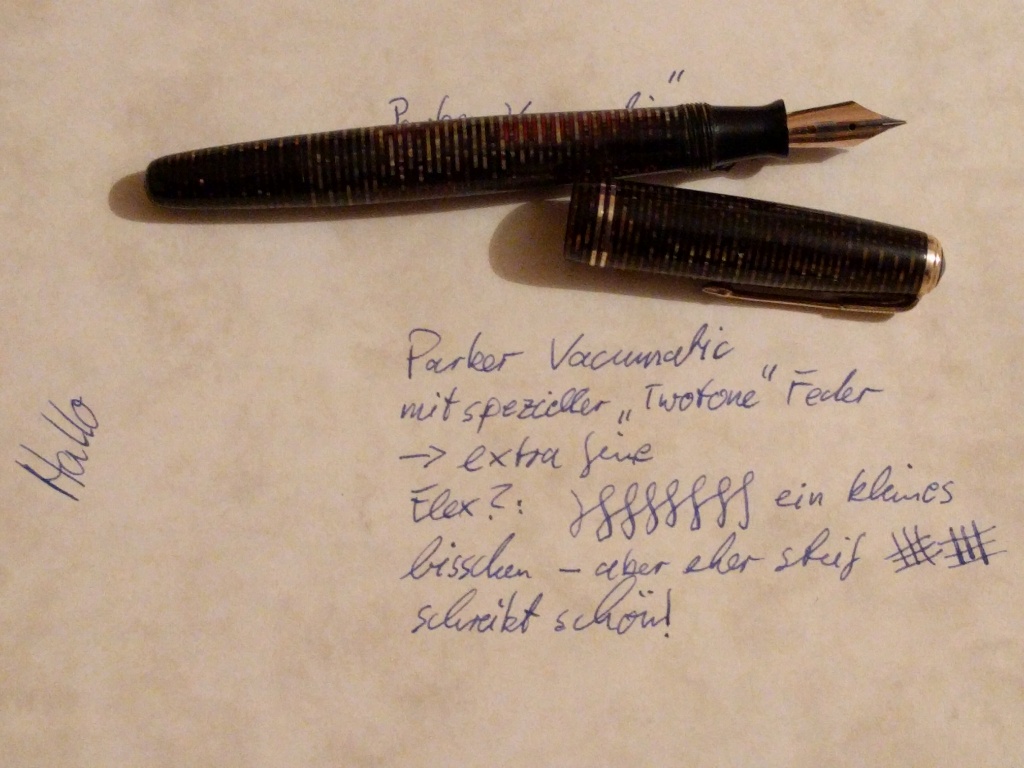 Parker
Parker Vacumatic
mit spezieller „Twotone" Feder
→ extra fine
Flex?: ein kleines
bisschen – aber eher steif
schreibt schön!
Hallo